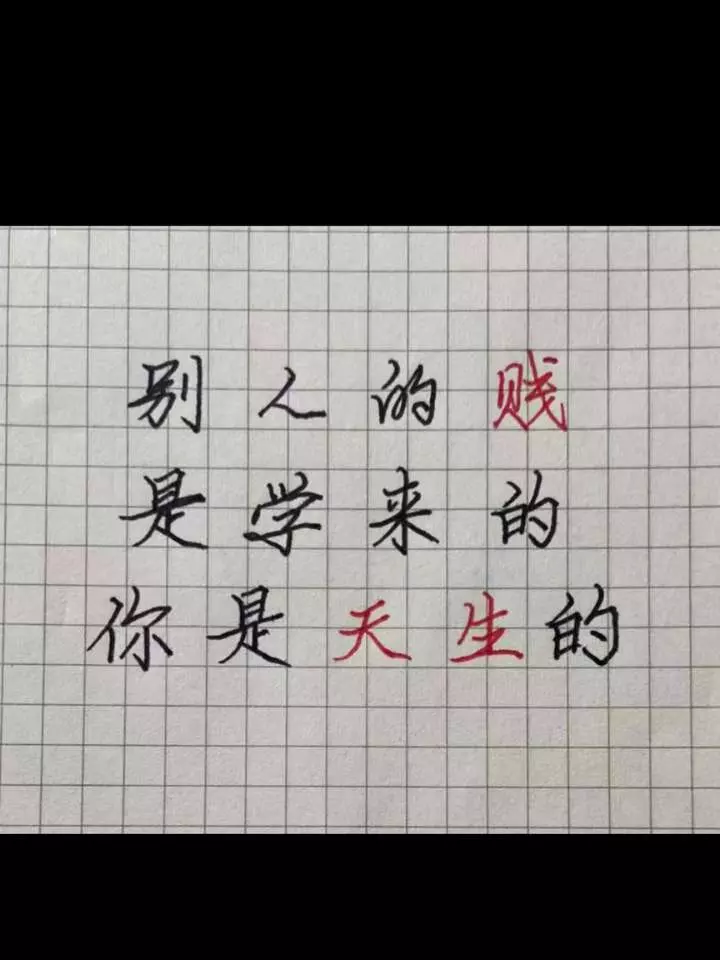 别人的贱
是学来的
你是天生的